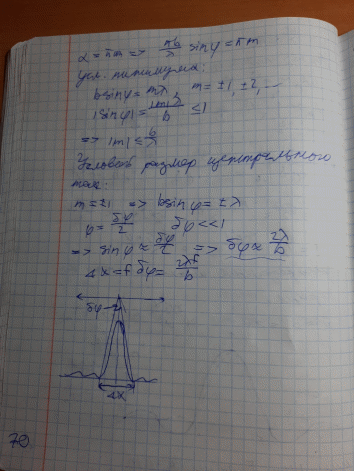 α = πm => πb/λ sinφ = πm
Усл. минимума:
b sinφ = mλ, m = ±1, ±2, ...
|sinφ| = |m|λ/b ≤ 1
=> |m| ≤ b/λ
Угловой размер центрального
max:
m = ±1 => b sinφ = ±λ
φ = δφ/2 δφ << 1
=> sinφ ≈ δφ/2 => δφ ≈ 2λ/b
Δx = f δφ = 2λf/b
δφ
Δx
70